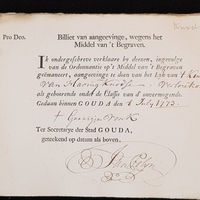 Pro Deo.
Billiet van aangeevinge, wegens het
Middel van 't Begraven.
Ik ondergeschreve verklaare by deezen, ingevolge
van de Ordonnantie op 't Middel van 't Begraven
geëmaneert, aangevinge te doen van het Lyk van 't Kind
Van
als gehoorende onder de Classis van d'onvermogende.
Gedaan binnen GOUDA den 6 July 1773.
Ter Secretarye der Stad GOUDA,
geteekend op datum als boven.